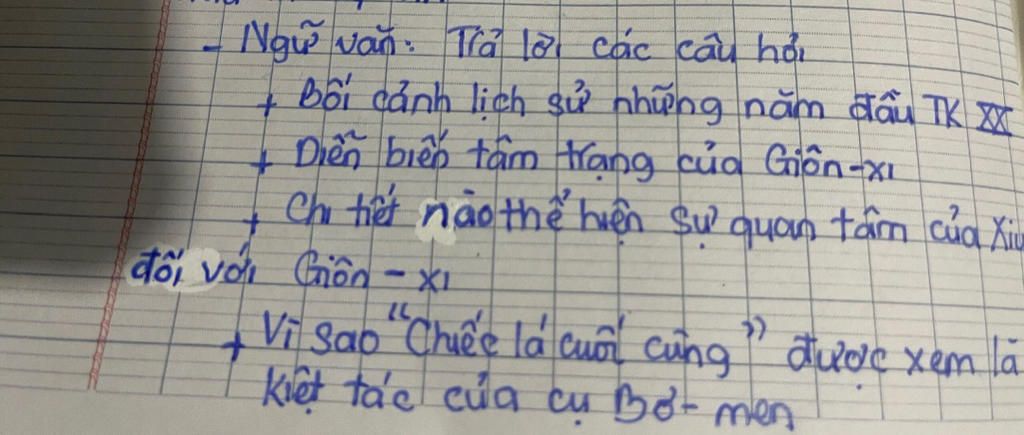 - Ngữ văn: Trả lời các câu hỏi
+ Bối cảnh lịch sử những năm đầu TK XX
+ Diễn biến tâm trạng của Giôn-xi
+ Chi tiết nào thể hiện sự quan tâm của Xiu
đối với Giôn-xi
+ Vì sao "Chiếc lá cuối cùng" được xem là
kiệt tác của cụ Bơ-men